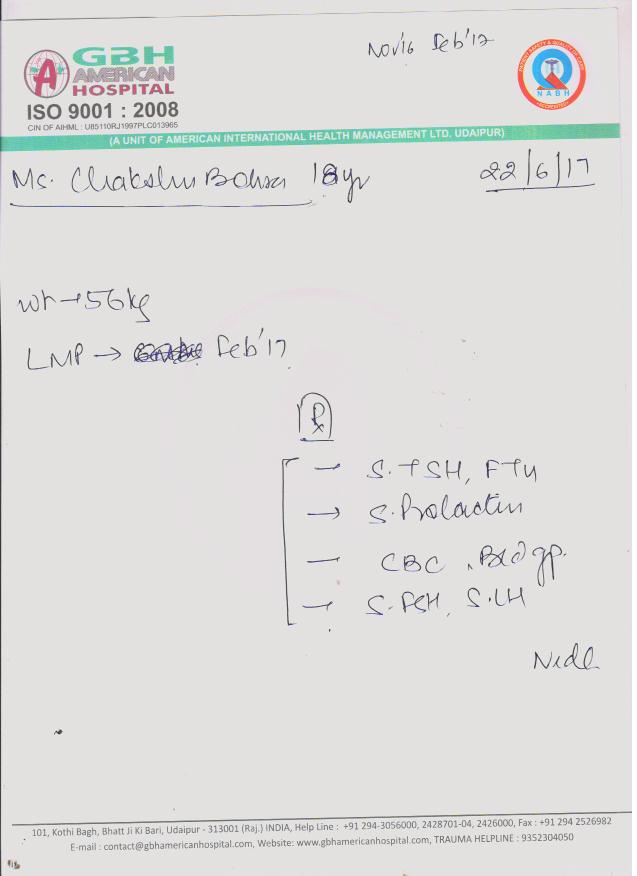 Nov'16 Feb'17
GBH
AMERICAN
HOSPITAL
ISO 9001 : 2008
CIN OF AIHML : U85110RJ1997PLC013965
PATIENT SAFETY & QUALITY OF CARE
NABH
ACCREDITED
(A UNIT OF AMERICAN INTERNATIONAL HEALTH MANAGEMENT LTD. UDAIPUR)
Ms. Chakshu 18yr 22/6/17
wt → 56 kg
LMP → Feb'17
Rx
— S. TSH, FT4
→ S. Prolactin
— CBC, Bld gp.
→ S. FSH, S. LH
101, Kothi Bagh, Bhatt Ji Ki Bari, Udaipur - 313001 (Raj.) INDIA, Help Line : +91 294-3056000, 2428701-04, 2426000, Fax : +91 294 2526982
E-mail : contact@gbhamericanhospital.com, Website: www.gbhamericanhospital.com, TRAUMA HELPLINE : 9352304050